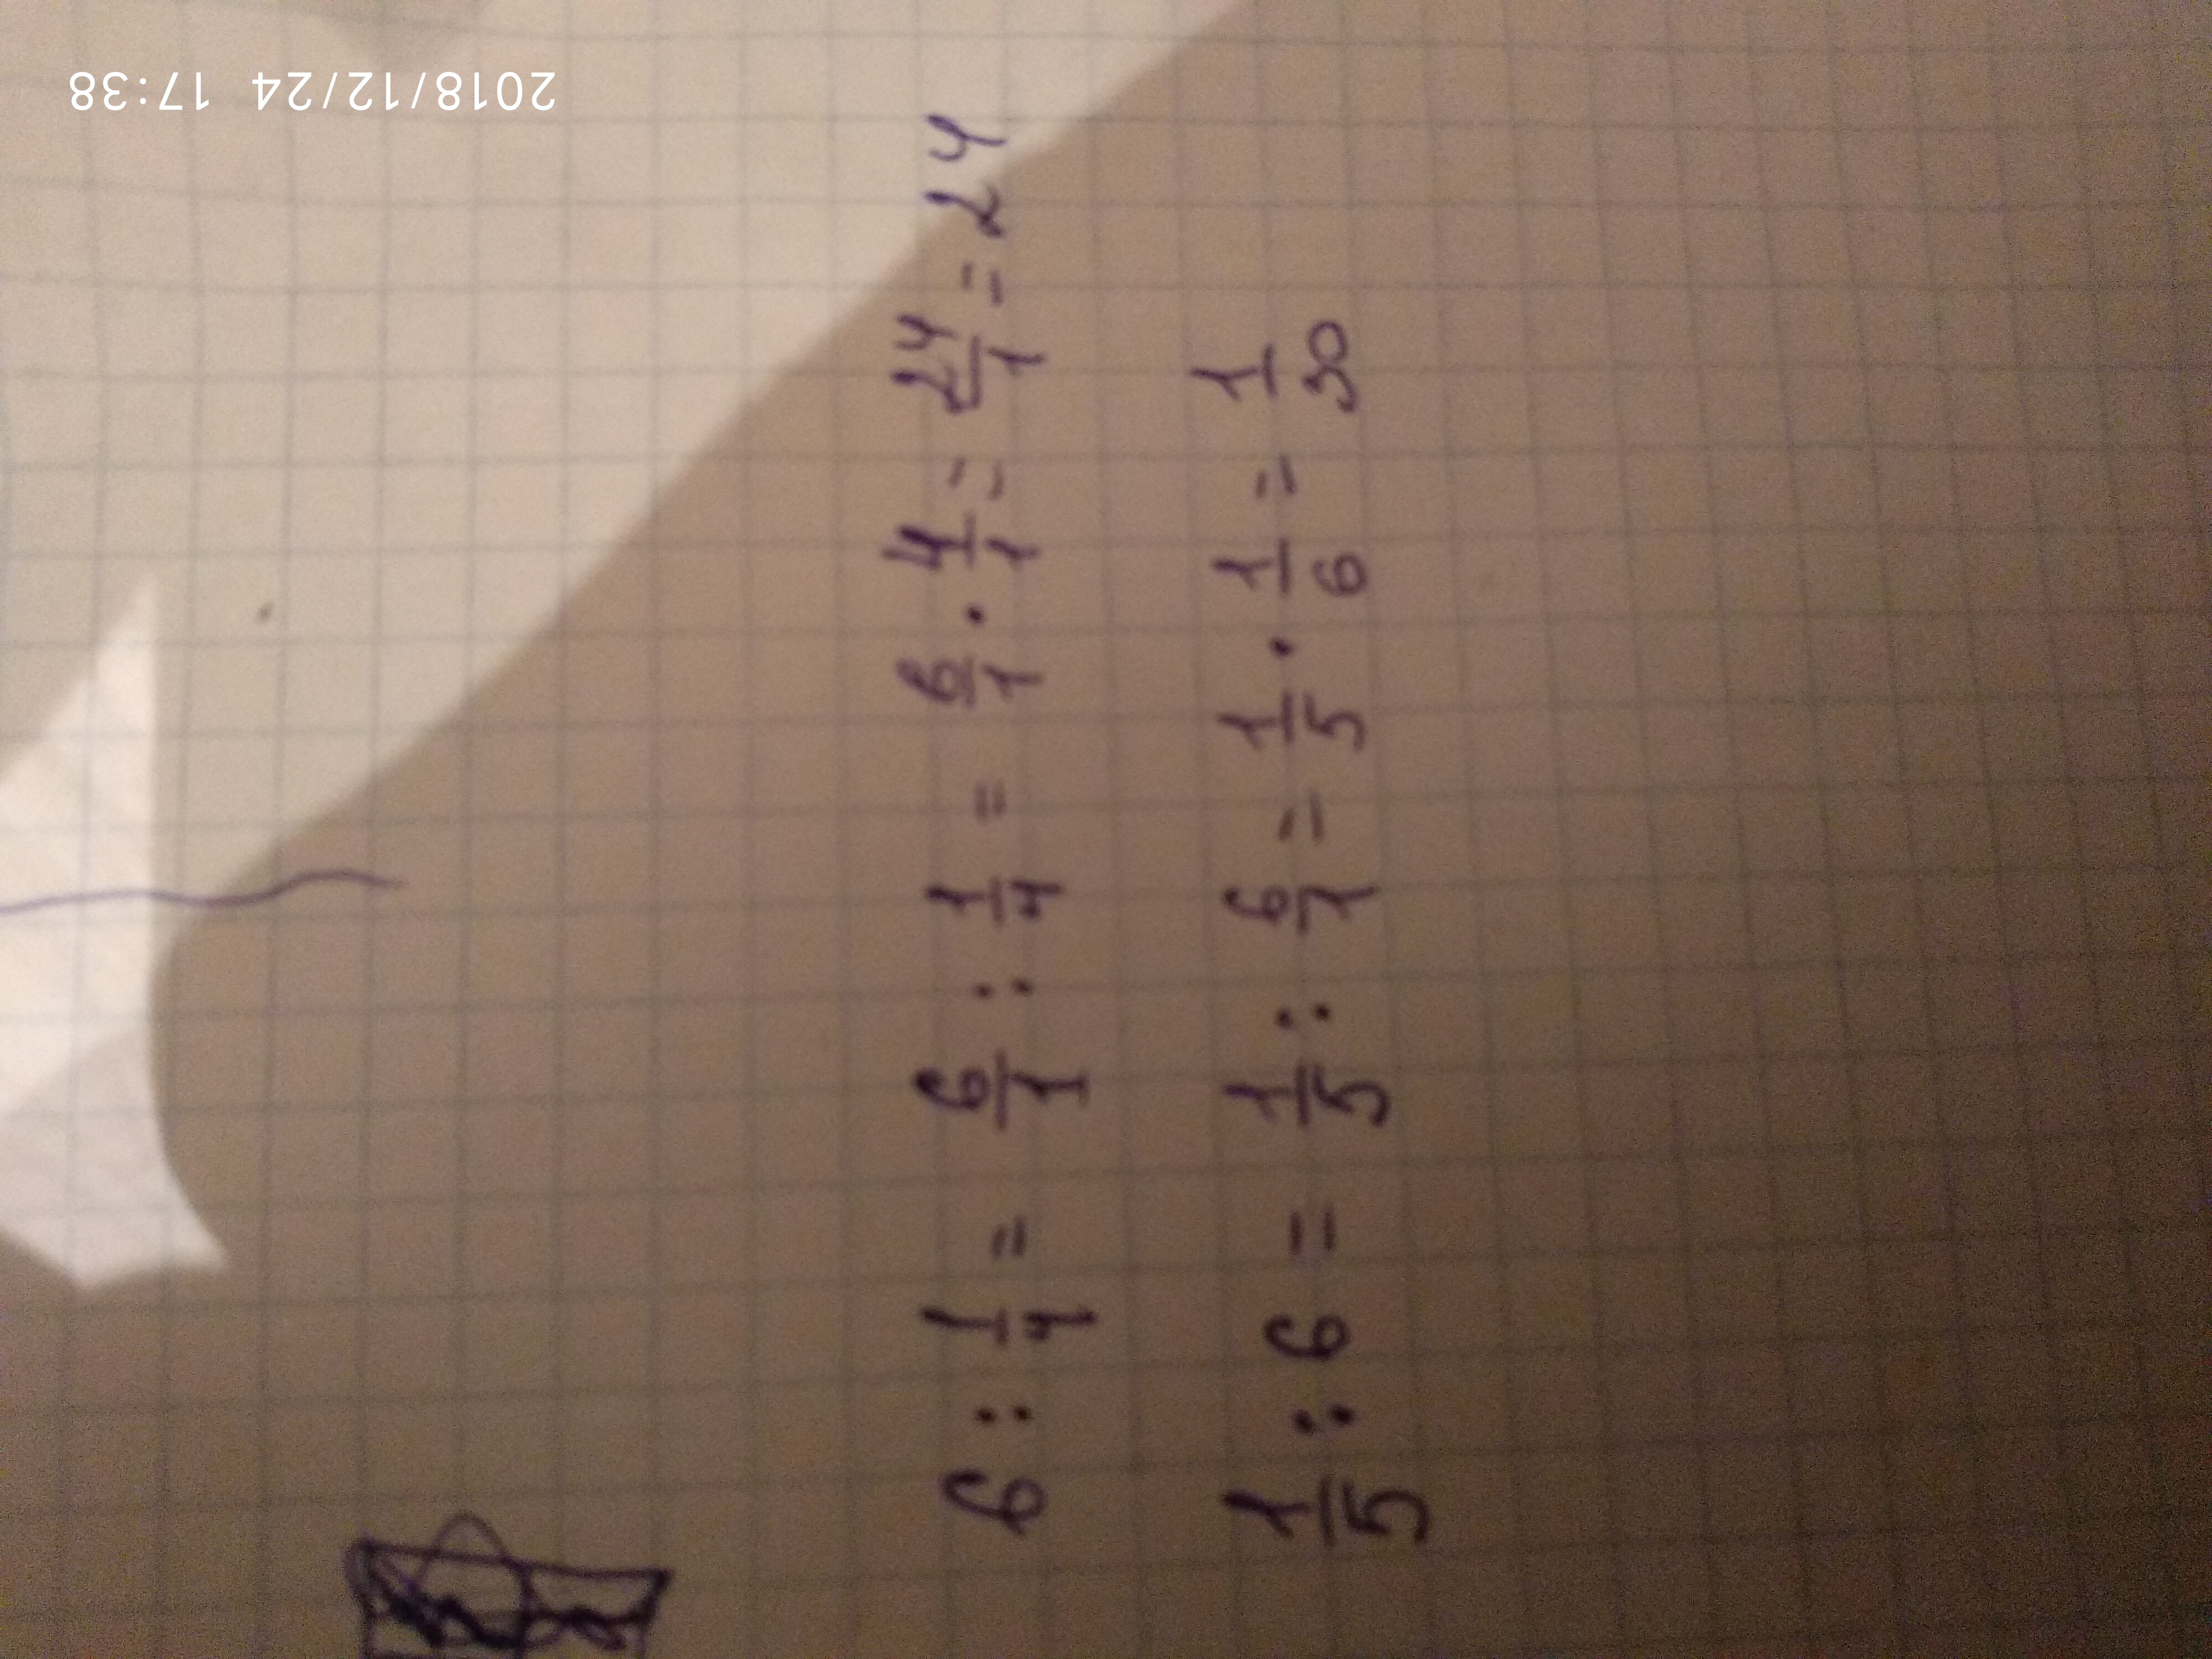 2018/12/24 17:38
6 : 1/4 = 6/1 : 1/4 = 6/1 · 4/1 = 24/1 = 24
1/5 : 6 = 1/5 : 6/1 = 1/5 · 1/6 = 1/30